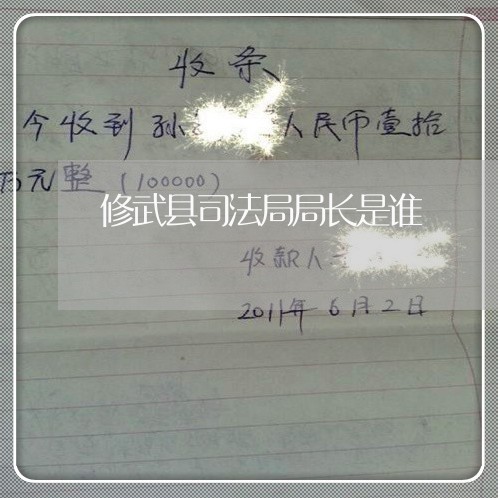 收条
今收到孙 人民币壹拾
万元整(100000)
修武县司法局局长是谁
收款人
2011年6月2日